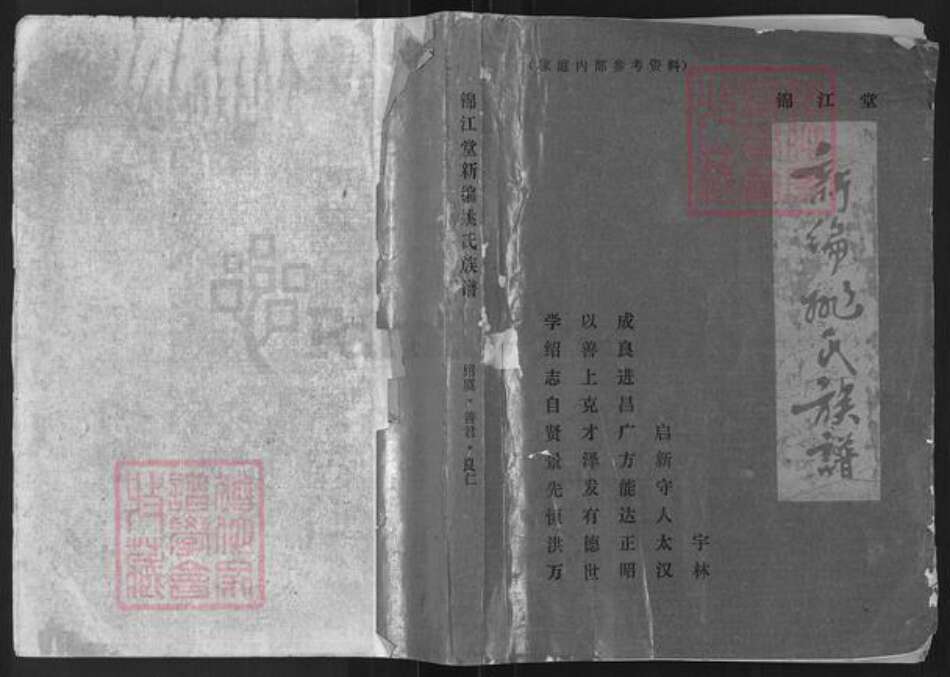 （家庭内部参考资料）
锦江堂
新编姚氏族譜
宇林
启新守人太汉
成良进昌广方能达正昭
以善上克才泽发有德世
学绍志自贤景先恒洪万
锦江堂新编姚氏族谱
绍虞·善君·良仁